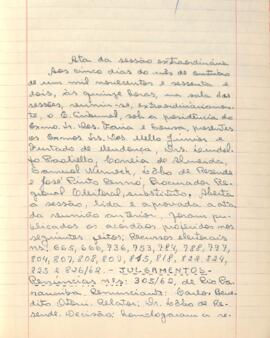 Ata da sessão extraordinária
Aos cinco dias do mês de outubro
de um mil novecentos e sessenta e
dois, às quinze horas, na sala das
sessões, reuniu-se, extraordinariamen-
te, o E. Tribunal, sob a presidência do
Exmo. Sr. Des. Faria e Sousa, presentes
os Exmos. Srs. Des. Mello Junior e
Furtado de Mendonça, Drs.
Correia de Almeida,
de Rezende
e José Pinto Procurador Re-
gional Eleitoral, substituto. Aberta
a sessão, lida e aprovada a ata
da reunião anterior, foram pu-
blicados os acórdãos proferidos nos
seguintes feitos: Recursos eleitorais
nºs: 665, 666, 736, 753, 784, 788, 797,
804, 807, 808, 809, 815, 818, 822, 824,
825 e 826/62. - JULGAMENTOS -
Renúncias nºs: 305/62, de Rio Pa-
ranaíba. Renunciante: Carlos Bene-
dito Otoni. Relator: Dr. de Re-
sende. Decisão: homologaram a re-